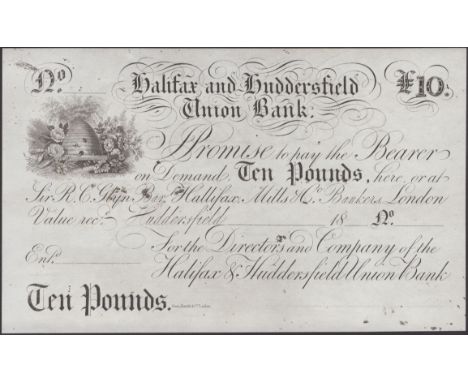 No
Halifax and Huddersfield
Union Bank.
£10.
I Promise to pay the Bearer
on Demand Ten Pounds, here, or at
Sir R. C. Glyn Bar.t Hallifax, Mills & Co. Bankers London
Value rec.d Huddersfield 18 No.
For the Directors and Company of the
Ent.d
Halifax & Huddersfield Union Bank
Ten Pounds.